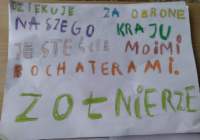 DZIEKUJE ZA OBRONE
NASZEGO KRAJU
JESTEŚCIE MOIMI
BOCHATERAMI.
ZOŁNIERZE